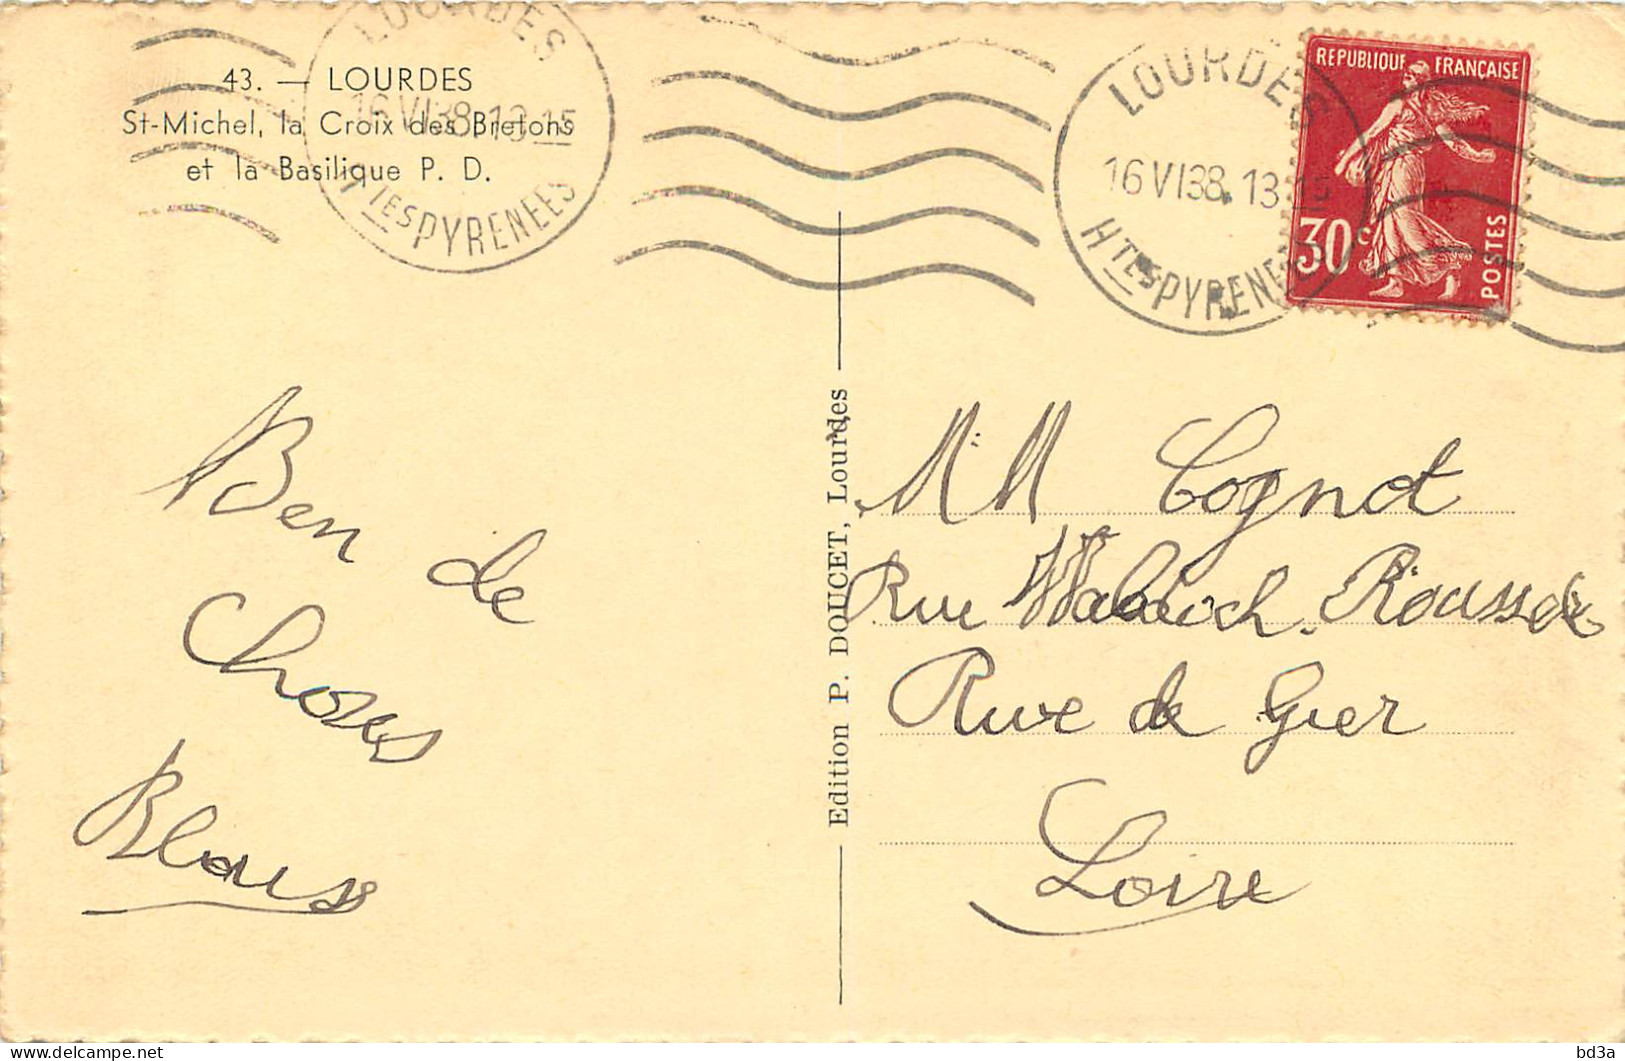 43. — LOURDES
St-Michel, la Croix des Bretons
et la Basilique P. D.
LOURDES
16 VI 38. 13 15
HTES PYRENEES
LOURDES
16 VI 38. 13 15
HTES PYRENEES
REPUBLIQUE FRANÇAISE
30 c
POSTES
Ben de
Choses
Blous
Edition P. DOUCET, Lourdes
M. M Cognot
Rue Rousseau
Rive de Gier
Loire
bd3a